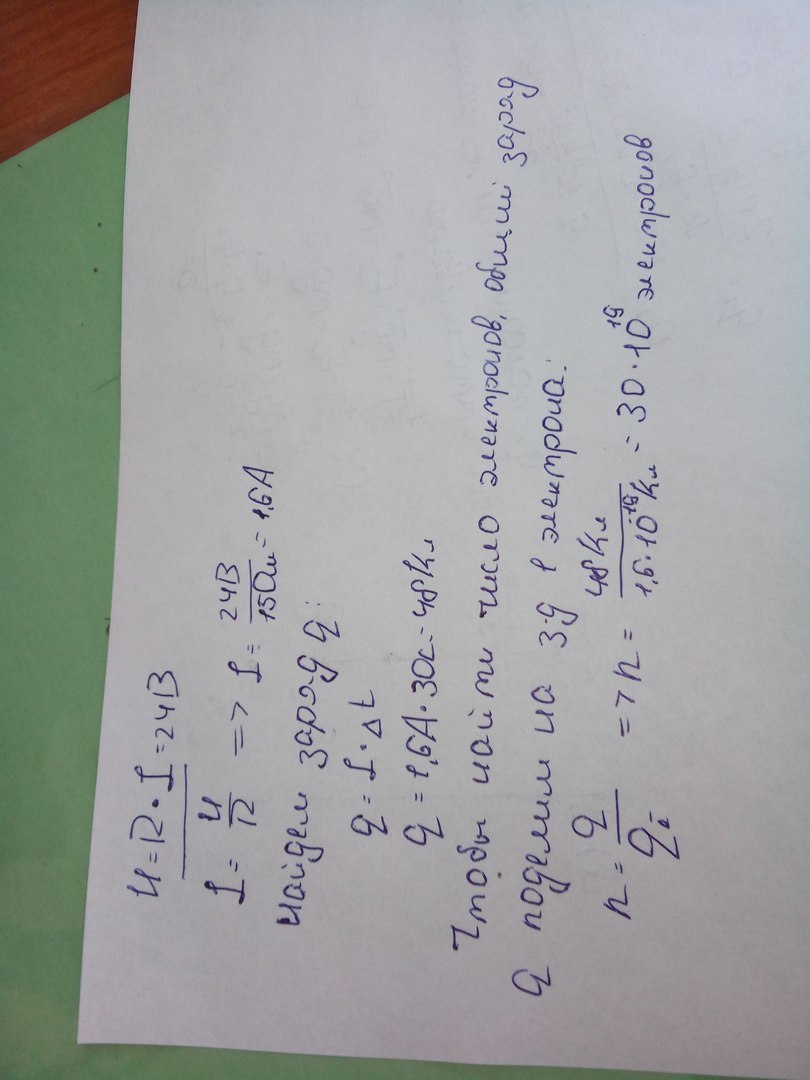 U = R · I = 24В
I = U/R => I = 24В/15Ом = 1,6А
Найдем заряд q:
q = I · Δt
q = 1,6А · 30с = 48Кл
Чтобы найти число электронов, общий заряд
q поделим на з-д 1 электрона:
n = q/qē => n = 48Кл/1,6·10⁻¹⁹Кл = 30·10¹⁹ электронов